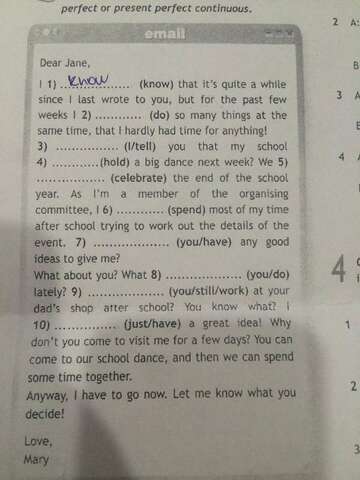 perfect or present perfect continuous.
email
Dear Jane,
I 1) know (know) that it's quite a while
since I last wrote to you, but for the past few
weeks I 2) ............ (do) so many things at the
same time, that I hardly had time for anything!
3) ............... (I/tell) you that my school
4) ............(hold) a big dance next week? We 5)
................. (celebrate) the end of the school
year. As I'm a member of the organising
committee, I 6) ............ (spend) most of my time
after school trying to work out the details of the
event. 7) .................. (you/have) any good
ideas to give me?
What about you? What 8) ................... (you/do)
lately? 9) ................... (you/still/work) at your
dad's shop after school? You know what? I
10) ............... (just/have) a great idea! Why
don't you come to visit me for a few days? You can
come to our school dance, and then we can spend
some time together.
Anyway, I have to go now. Let me know what you
decide!
Love,
Mary
2 A:
B
3 A
E
4
4
1
2
3